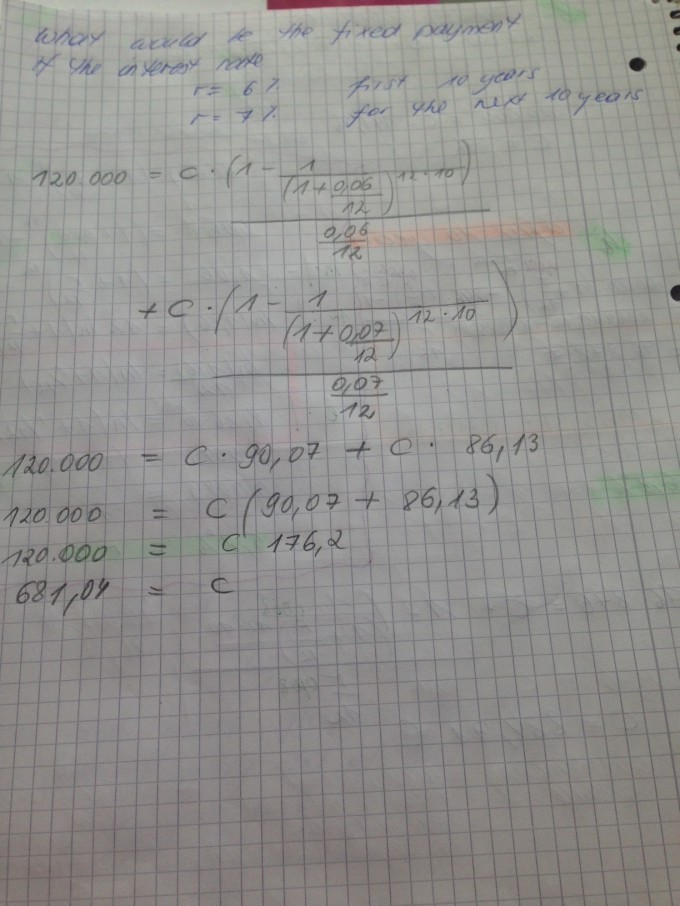 What would be the fixed payment
if the interest rate
r = 6% first 10 years
r = 7% for the next 10 years
120.000 = C · (1 - 1
(1 + 0,06 ) 12·10 )
12
0,06
12
+ C · (1 - 1 )
(1 + 0,07 ) 12·10
12
0,07
12
120.000 = C · 90,07 + C · 86,13
120.000 = C (90,07 + 86,13)
120.000 = C 176,2
681,04 = C